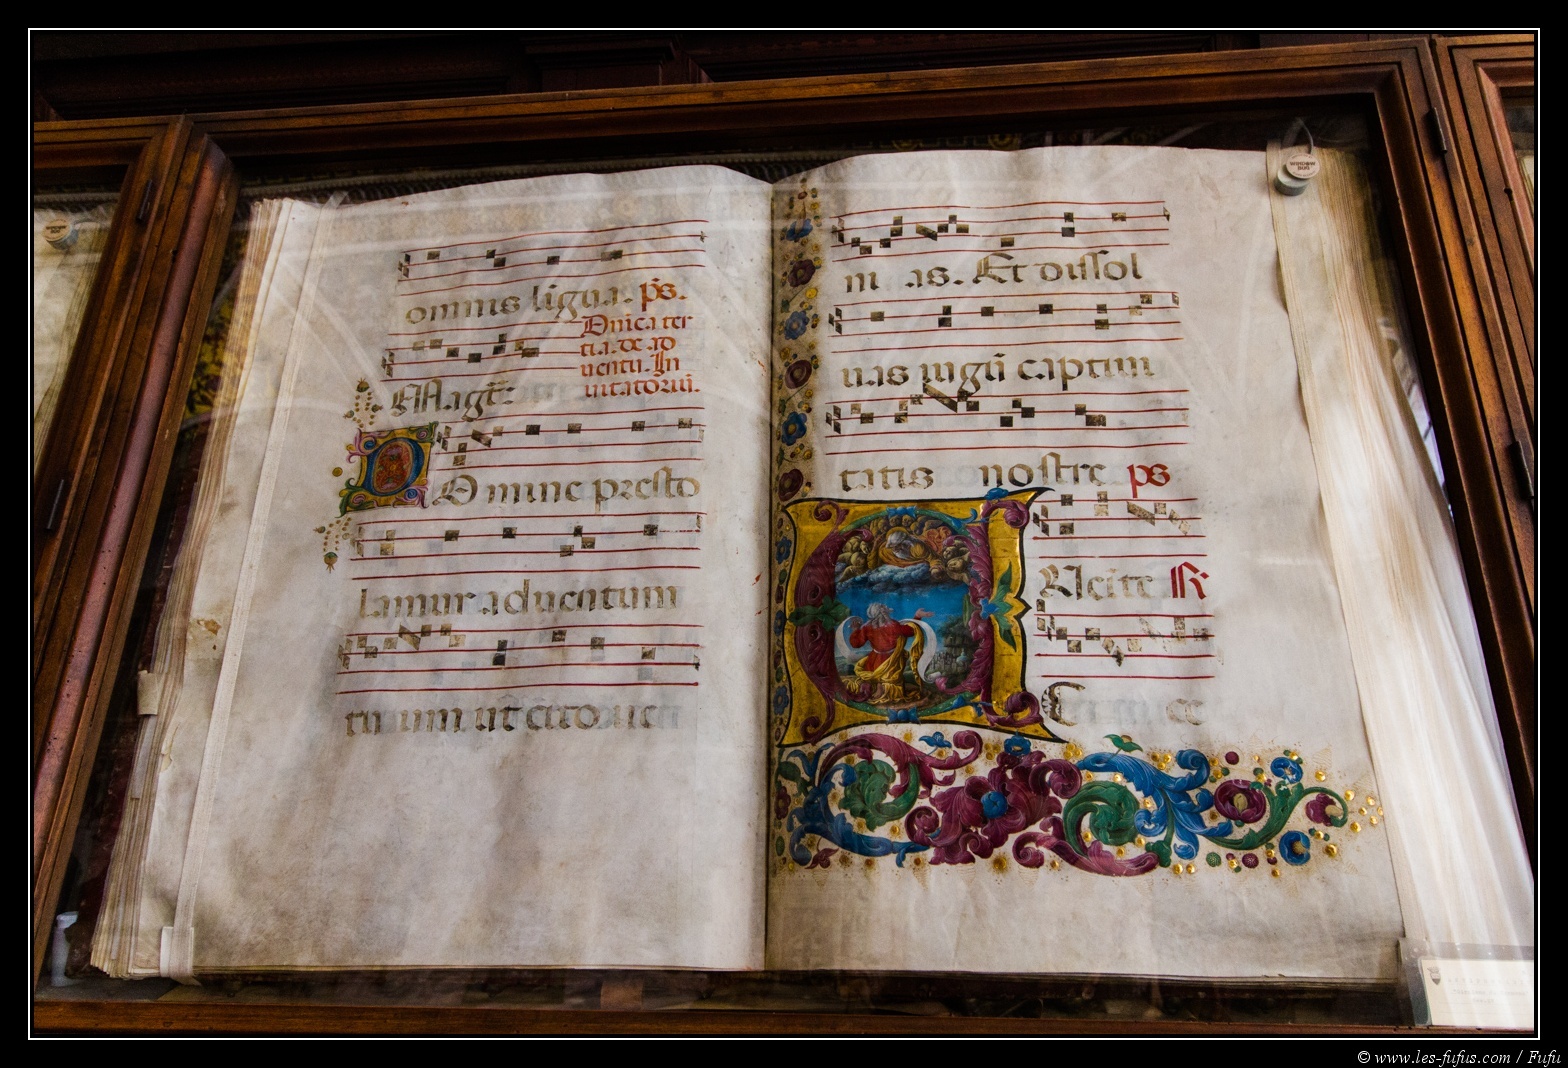 omnis ligua. ps.
Dnica ter
tia. de ad
uentu. In
uitatoriu.
Magt
Domine presto
lamur aduentum
tuum ut cito ueni
as. Et dissol
uas iugu captiui
tatis nostre ps
Alcite R
© www.les-fufus.com / Fufu